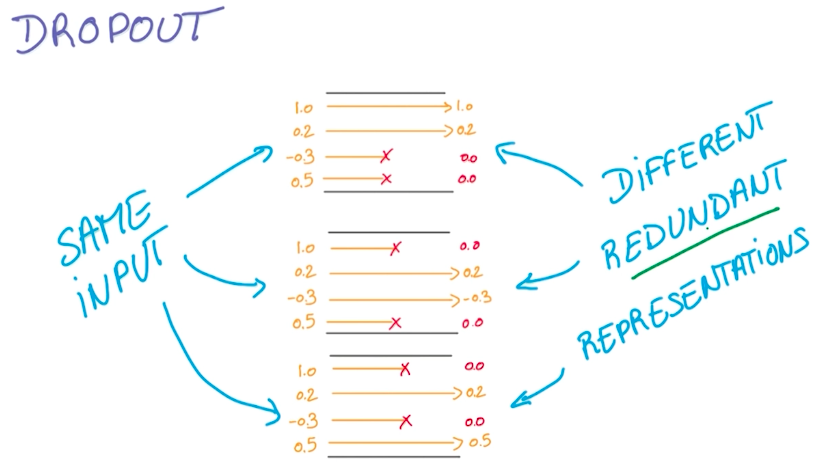 DROPOUT
SAME
INPUT
1.0 1.0
0.2 0.2
-0.3 x 0.0
0.5 x 0.0
1.0 x 0.0
0.2 0.2
-0.3 -0.3
0.5 x 0.0
1.0 x 0.0
0.2 0.2
-0.3 x 0.0
0.5 0.5
DiFFERENT
REDUNDANT
REPRESENTATIONS